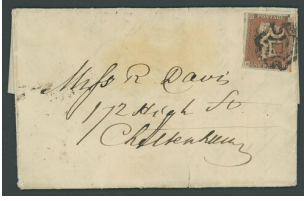 Miss R Davis
172 High St.
Cheltenham